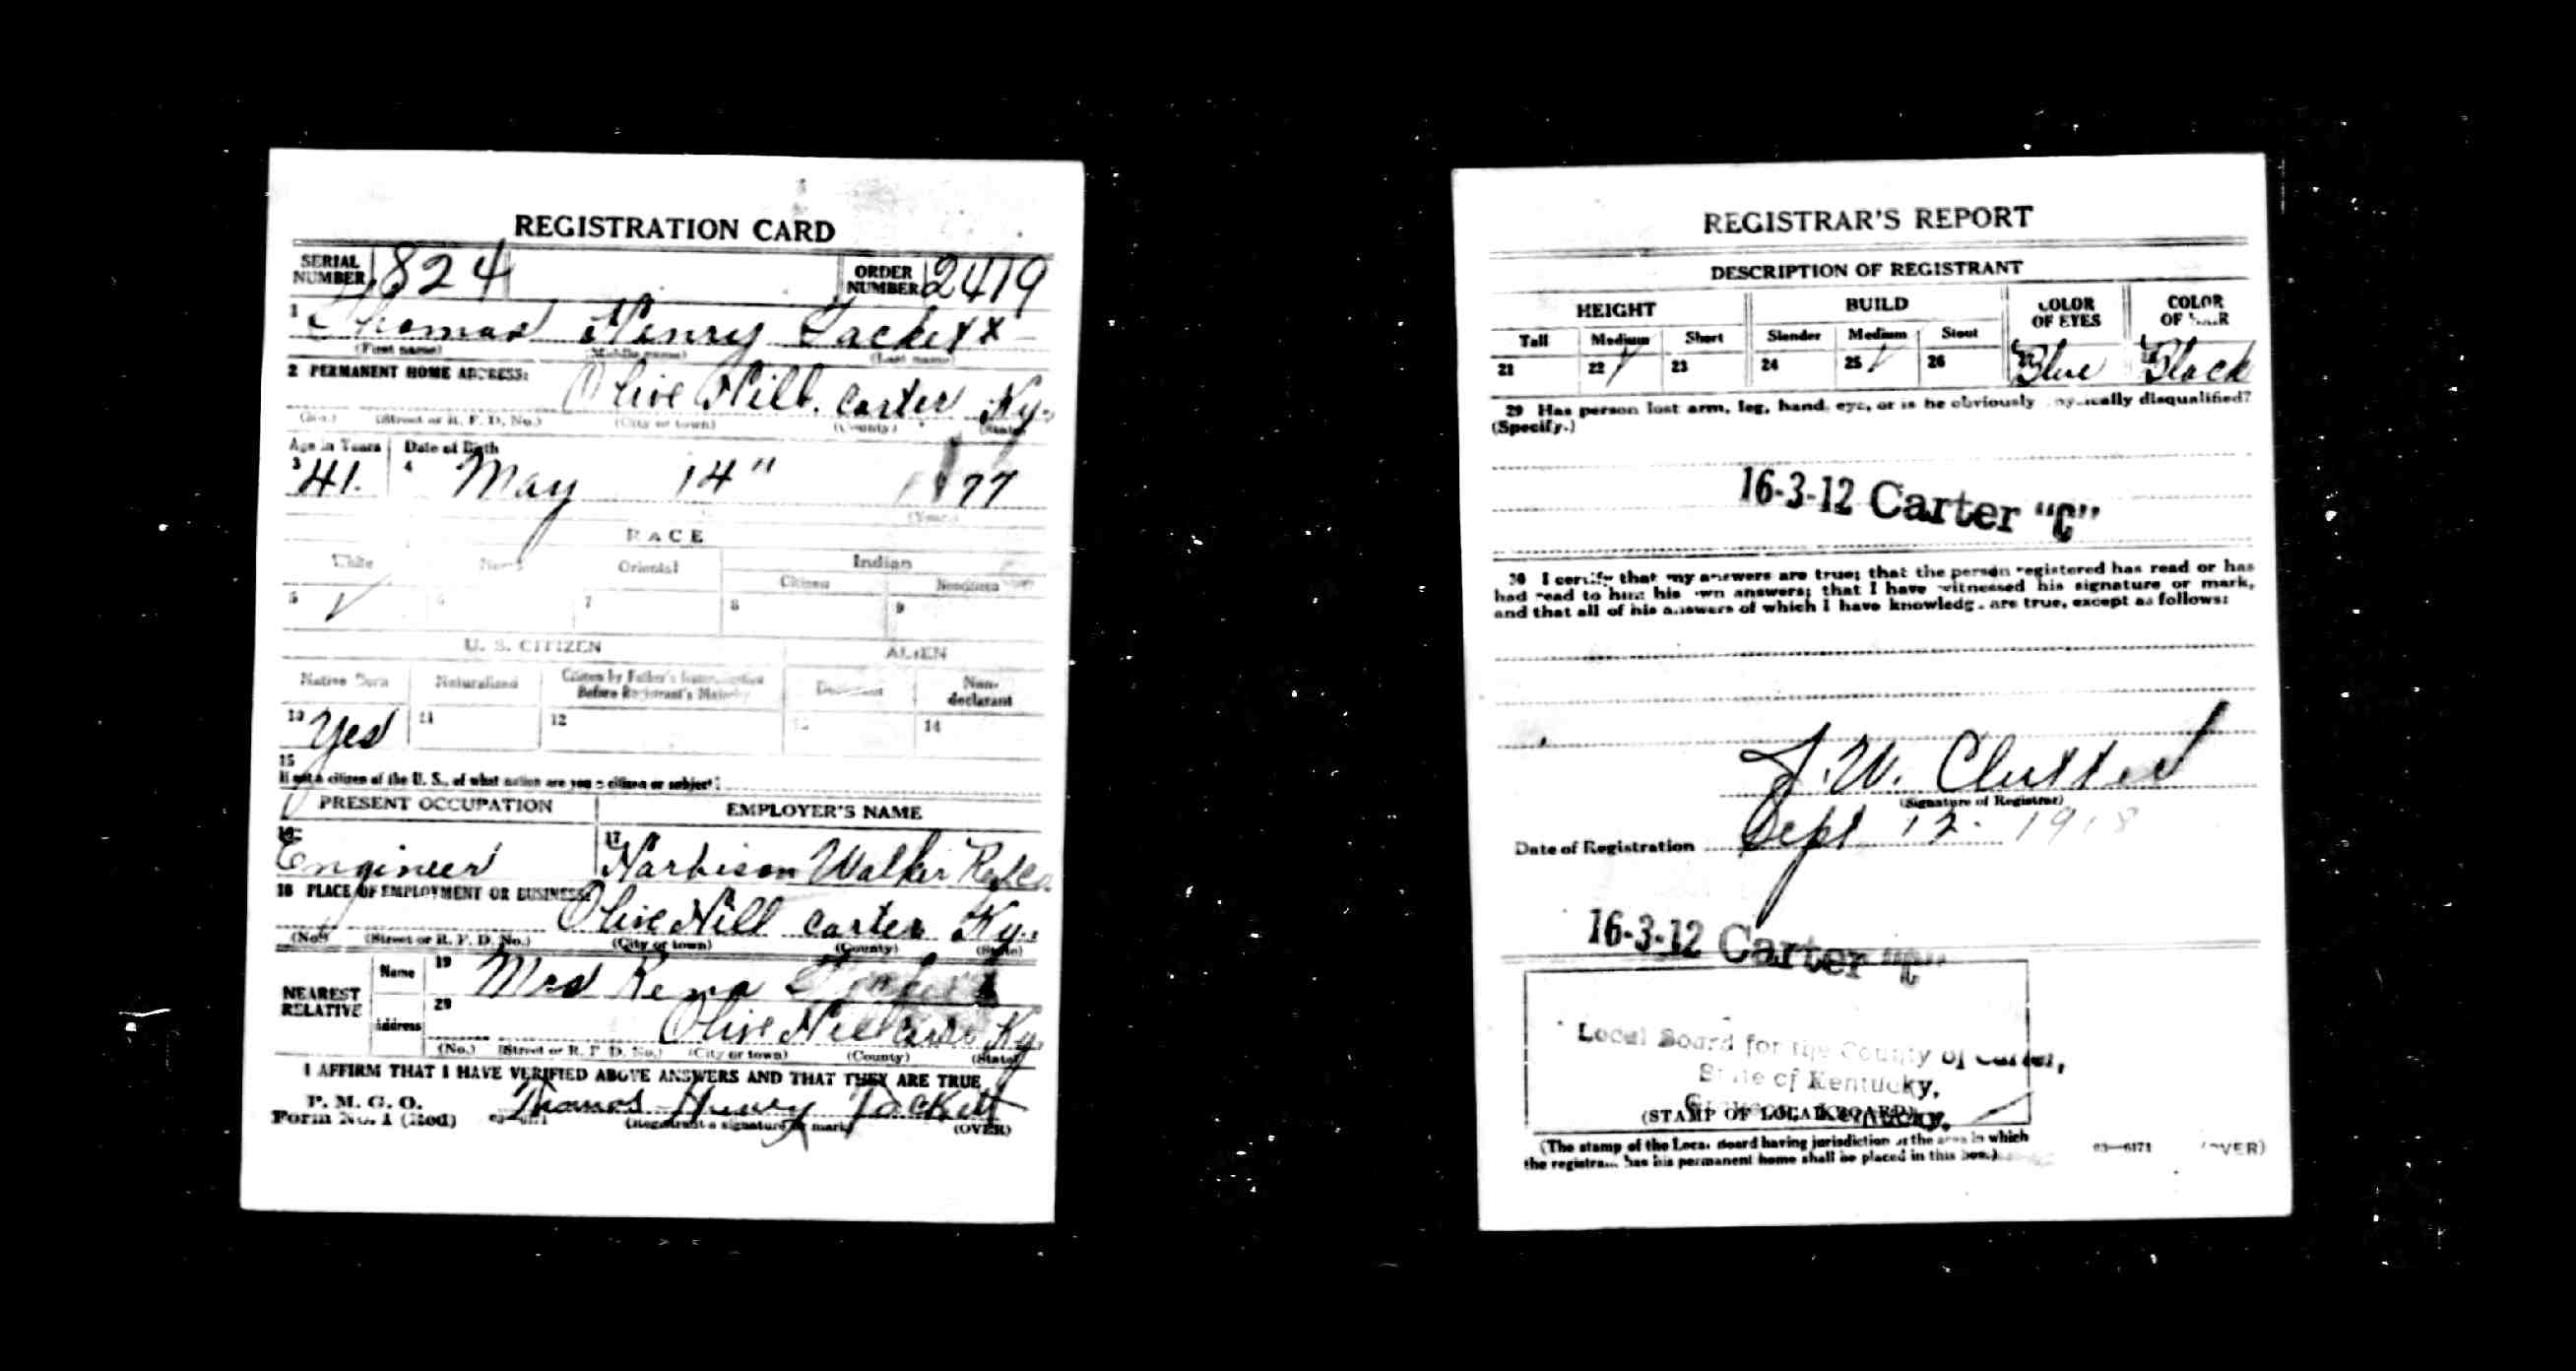 REGISTRATION CARD
SERIAL NUMBER 824 ORDER NUMBER 2419
1 Thomas Henry Tackett
(First name) (Middle name) (Last name)
2 PERMANENT HOME ADDRESS: Olive Hill. Carter Ky.
(No.) (Street or R. F. D. No.) (City or town) (County) (State)
Age in Years Date of Birth
3 41. 4 May 14" 1877
(Year.)
RACE
White Negro Oriental Indian
Citizen Noncitizen
5 ✓ 6 7 8 9
U. S. CITIZEN ALIEN
Native Born Naturalized Citizen by Father's Naturalization Before Registrant's Majority Declarant Non-declarant
10 Yes 11 12 13 14
15
If not a citizen of the U. S., of what nation are you a citizen or subject?
PRESENT OCCUPATION EMPLOYER'S NAME
16 Engineer 17 Harbison Walker
18 PLACE OF EMPLOYMENT OR BUSINESS: Olive Hill Carter Ky.
(No.) (Street or R. F. D. No.) (City or town) (County) (State)
NEAREST RELATIVE Name 19 Mrs Rena Tackett
Address 20 Olive Hill Ky.
(No.) (Street or R. F. D. No.) (City or town) (County) (State)
I AFFIRM THAT I HAVE VERIFIED ABOVE ANSWERS AND THAT THEY ARE TRUE
P. M. G. O.
Form No. 1 (Red) 03—6171 Thomas Henry Tackett
(Registrant's signature or mark) (OVER)
REGISTRAR'S REPORT
DESCRIPTION OF REGISTRANT
HEIGHT BUILD COLOR OF EYES COLOR OF HAIR
Tall Medium Short Slender Medium Stout
21 22 ✓ 23 24 25 ✓ 26 27 Blue 28 Black
29 Has person lost arm, leg, hand, eye, or is he obviously physically disqualified?
(Specify.)
16-3-12 Carter "C"
30 I certify that my answers are true; that the person registered has read or has
had read to him his own answers; that I have witnessed his signature or mark,
and that all of his answers of which I have knowledge are true, except as follows:
(Signature of Registrar)
Date of Registration Sept 12. 1918
16-3-12 Carter "C"
Local Board for the County of Carter,
State of Kentucky,
Kentucky.
(STAMP OF LOCAL BOARD)
(The stamp of the Local Board having jurisdiction of the area in which
the registrant has his permanent home shall be placed in this box.)
03—6171 (OVER)